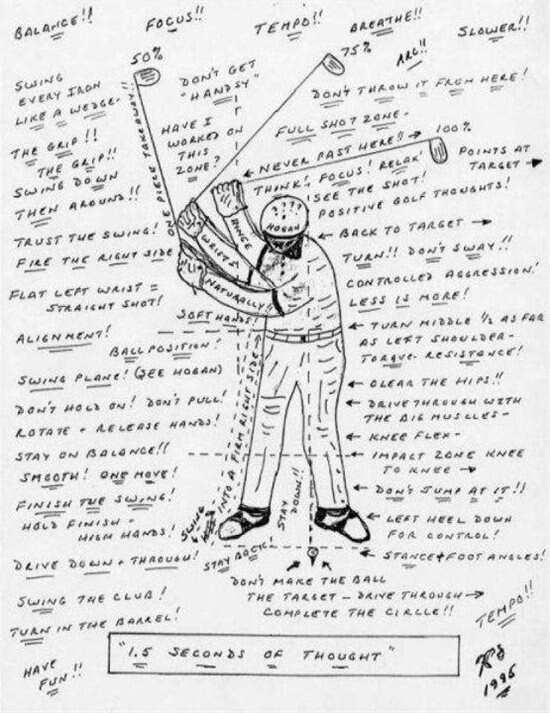 BALANCE!!
FOCUS!!
TEMPO!!
BREATHE!!
SLOWER!!
50%
75%
ARC!!
SWING
EVERY IRON
LIKE A WEDGE-
DON'T GET
"HANDSY"
DON'T THROW IT FROM HERE!
THE GRIP!!
THE GRIP!!
ONE PIECE TAKEAWAY!!
HAVE I
WORKED ON
THIS
ZONE?
FULL SHOT ZONE-
100%
← NEVER PAST HERE!! →
POINTS AT
TARGET →
THINK! FOCUS! RELAX!
SEE THE SHOT!
POSITIVE GOLF THOUGHTS!
SWING DOWN
THEN AROUND!!
TRUST THE SWING!
FIRE THE RIGHT SIDE
WRISTS
HINGE
NATURALLY!!
????
HOGAN
← BACK TO TARGET →
TURN!! DON'T SWAY!!
CONTROLLED AGGRESSION!
LESS IS MORE!
FLAT LEFT WRIST =
STRAIGHT SHOT!
SOFT HANDS!
← TURN MIDDLE 1/2 AS FAR
AS LEFT SHOULDER-
TORQUE - RESISTANCE!
ALIGNMENT!
BALL POSITION!
SWING PLANE! (SEE HOGAN)
← CLEAR THE HIPS!!
DON'T HOLD ON! DON'T PULL!
ROTATE + RELEASE HANDS!
← DRIVE THROUGH WITH
THE BIG MUSCLES-
← KNEE FLEX-
STAY ON BALANCE!!
← IMPACT ZONE KNEE
TO KNEE →
SMOOTH! ONE MOVE!
FINISH THE SWING!
HOLD FINISH -
HIGH HANDS!
INTO A FIRM RIGHT SIDE
SWING
STAY
DOWN!!
← DON'T JUMP AT IT!!
← LEFT HEEL DOWN
FOR CONTROL!
DRIVE DOWN + THROUGH!
STAY BACK
← STANCE + FOOT ANGLES!
DON'T MAKE THE BALL
THE TARGET - DRIVE THROUGH →
COMPLETE THE CIRCLE!!
SWING THE CLUB!
TURN IN THE BARREL!
TEMPO!!
"1.5 SECONDS OF THOUGHT"
HAVE
FUN!!
1996